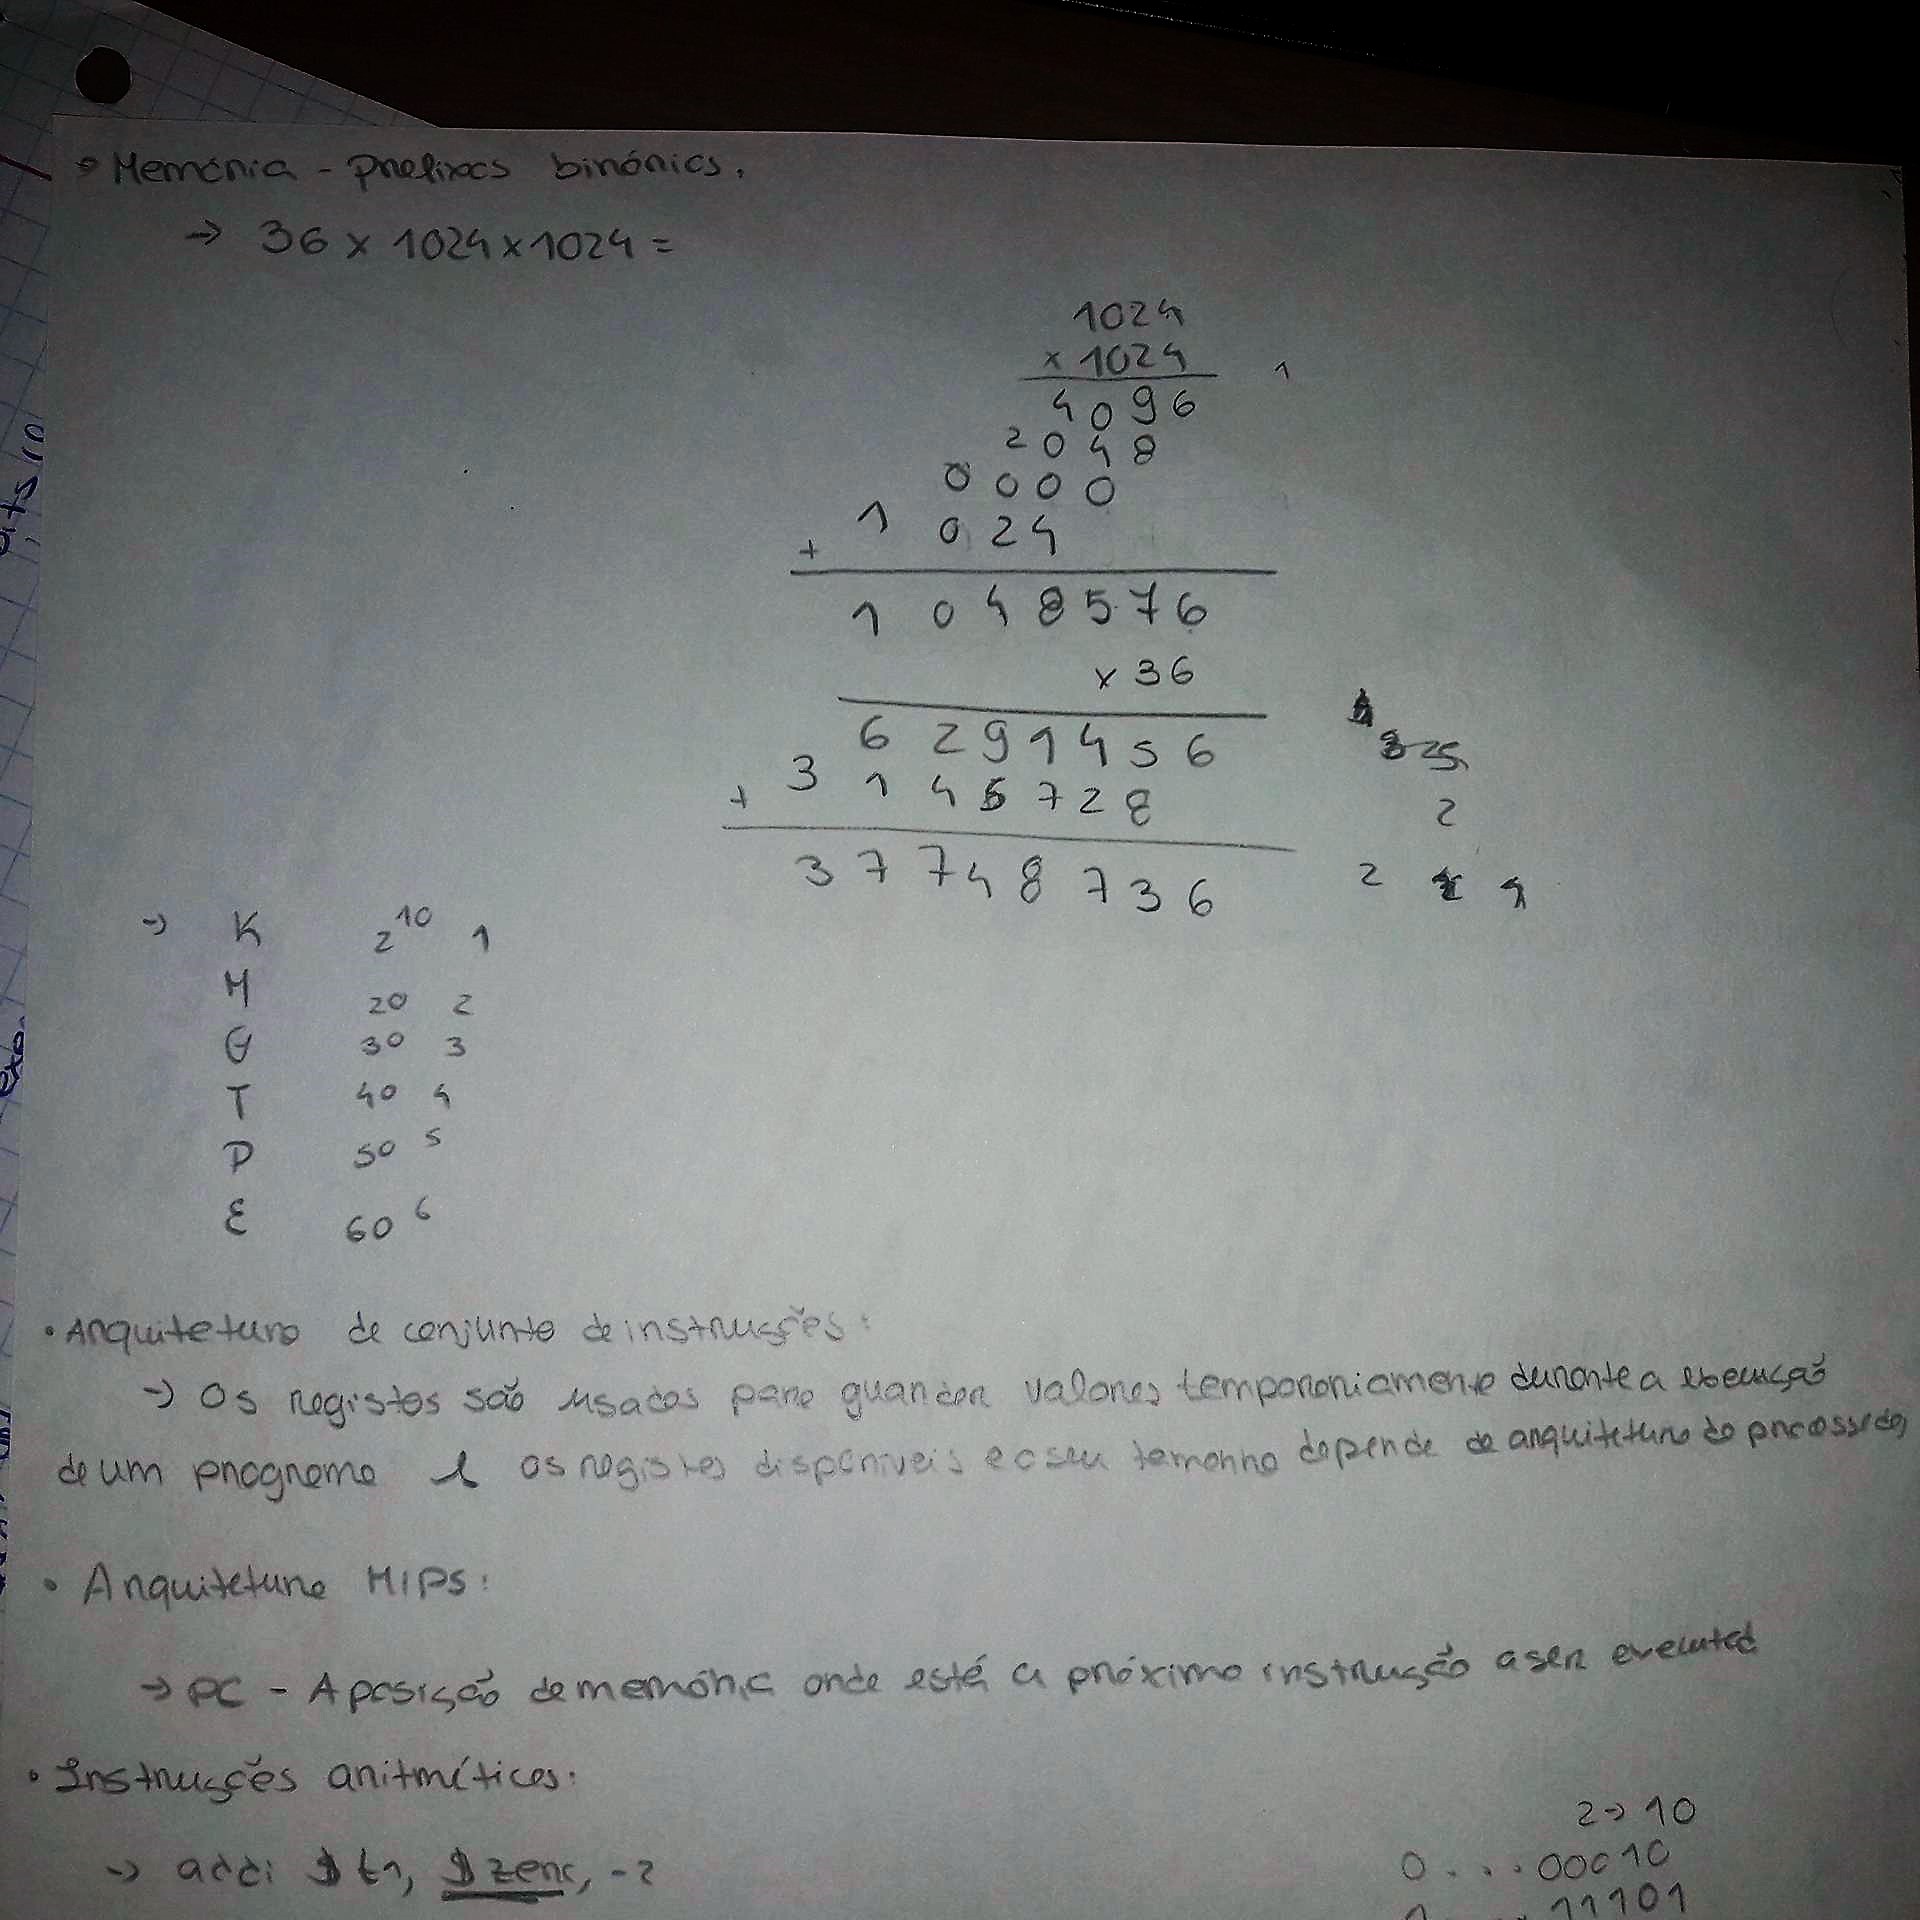 Memória - Prefixos binários.
→ 36 x 1024 x 1024 =
1024
x 1024 1
4096
2048
0000
+ 1024
1048576
x 36
6291456
+ 3145728 2
37748736 2 1
→ K 2^10 1
M 20 2
G 30 3
T 40 4
P 50 5
E 60 6
• Arquitetura de conjunto de instruções:
→ Os registos são usados para guardar valores temporariamente durante a execução
de um programa e os registos disponíveis e o seu tamanho depende da arquitetura do processador
• Arquitetura MIPS:
→ PC - A posição de memória onde está a próxima instrução a ser
• Instruções aritméticas:
2→10
→ addi $t1, $zero, -2 0....00010
1....11101